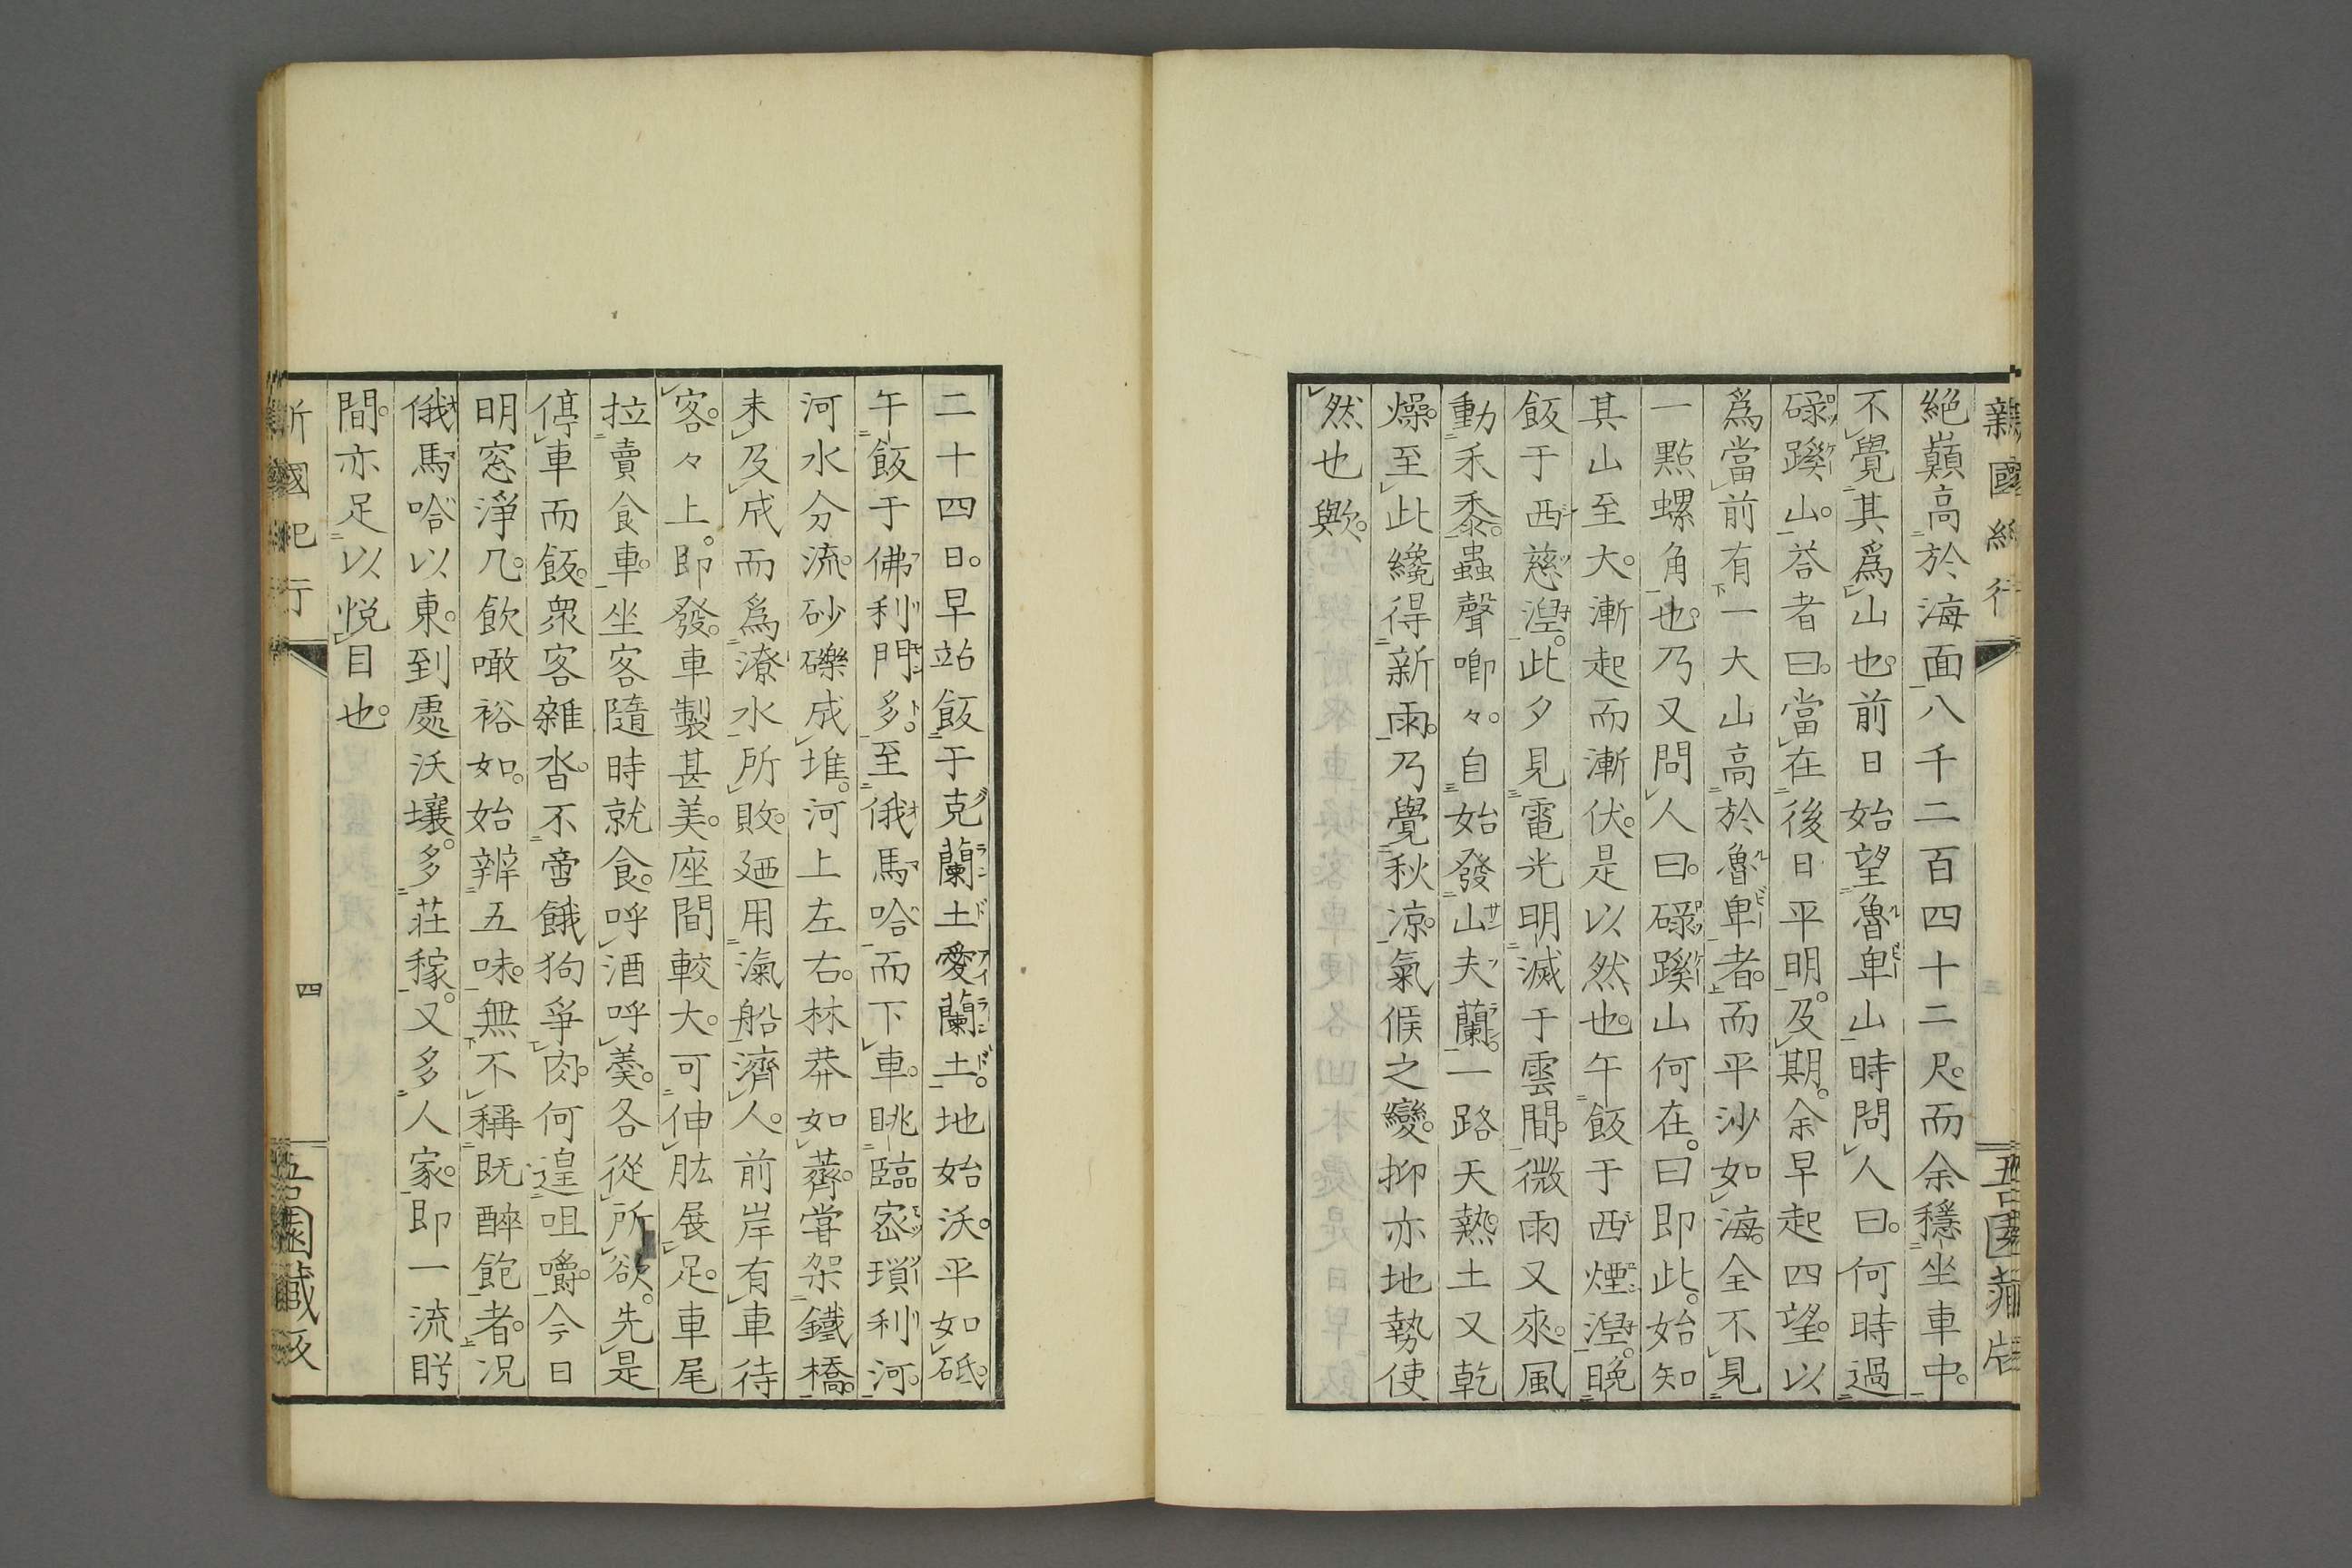 絶巓高於海面八千二百四十二尺。而余穩坐車中。
不覺其爲山也。前日始望魯卑山時問人曰。何時過
碌蹊山。荅者曰。當在後日平明。及期。余早起四望。以
爲當前有一大山高於魯卑者。而平沙如海。全不見
一點螺角也。乃又問人曰。碌蹊山何在。曰即此。始知
其山至大。漸起而漸伏。是以然也。午飯于西煙湼。晩
飯于西慈湼。此夕見電光明滅于雲間。微雨又來。風
動禾黍。蟲聲喞々。自始發山夫蘭。一路天熱。土又乾
燥。至此纔得新雨。乃覺秋凉。氣候之變。抑亦地勢使
然也歟。
二十四日。早站飯于克蘭土愛蘭土。地始沃。平如砥。
午飯于佛利門多。至俄馬哈而下車。眺臨宻瑣利河。
河水分流。砂礫成堆。河上左右。林莽如薺。嘗架鐵橋。
未及成而爲潦水所敗。廼用滊船濟人。前岸有車待
客。客々上。即發。車製甚美。座間較大。可伸肱展足。車尾
拉賣食車。坐客隨時就食。呼酒呼羮。各從所欲。先是
停車而飯。衆客雜沓。不啻餓狗爭肉。何遑咀嚼。今日
明窓淨几。飲噉裕如。始辨五味。無不稱既醉飽者。况
俄馬哈以東。到處沃壤。多荘稼。又多人家。即一流眄
間。亦足以悦目也。
四